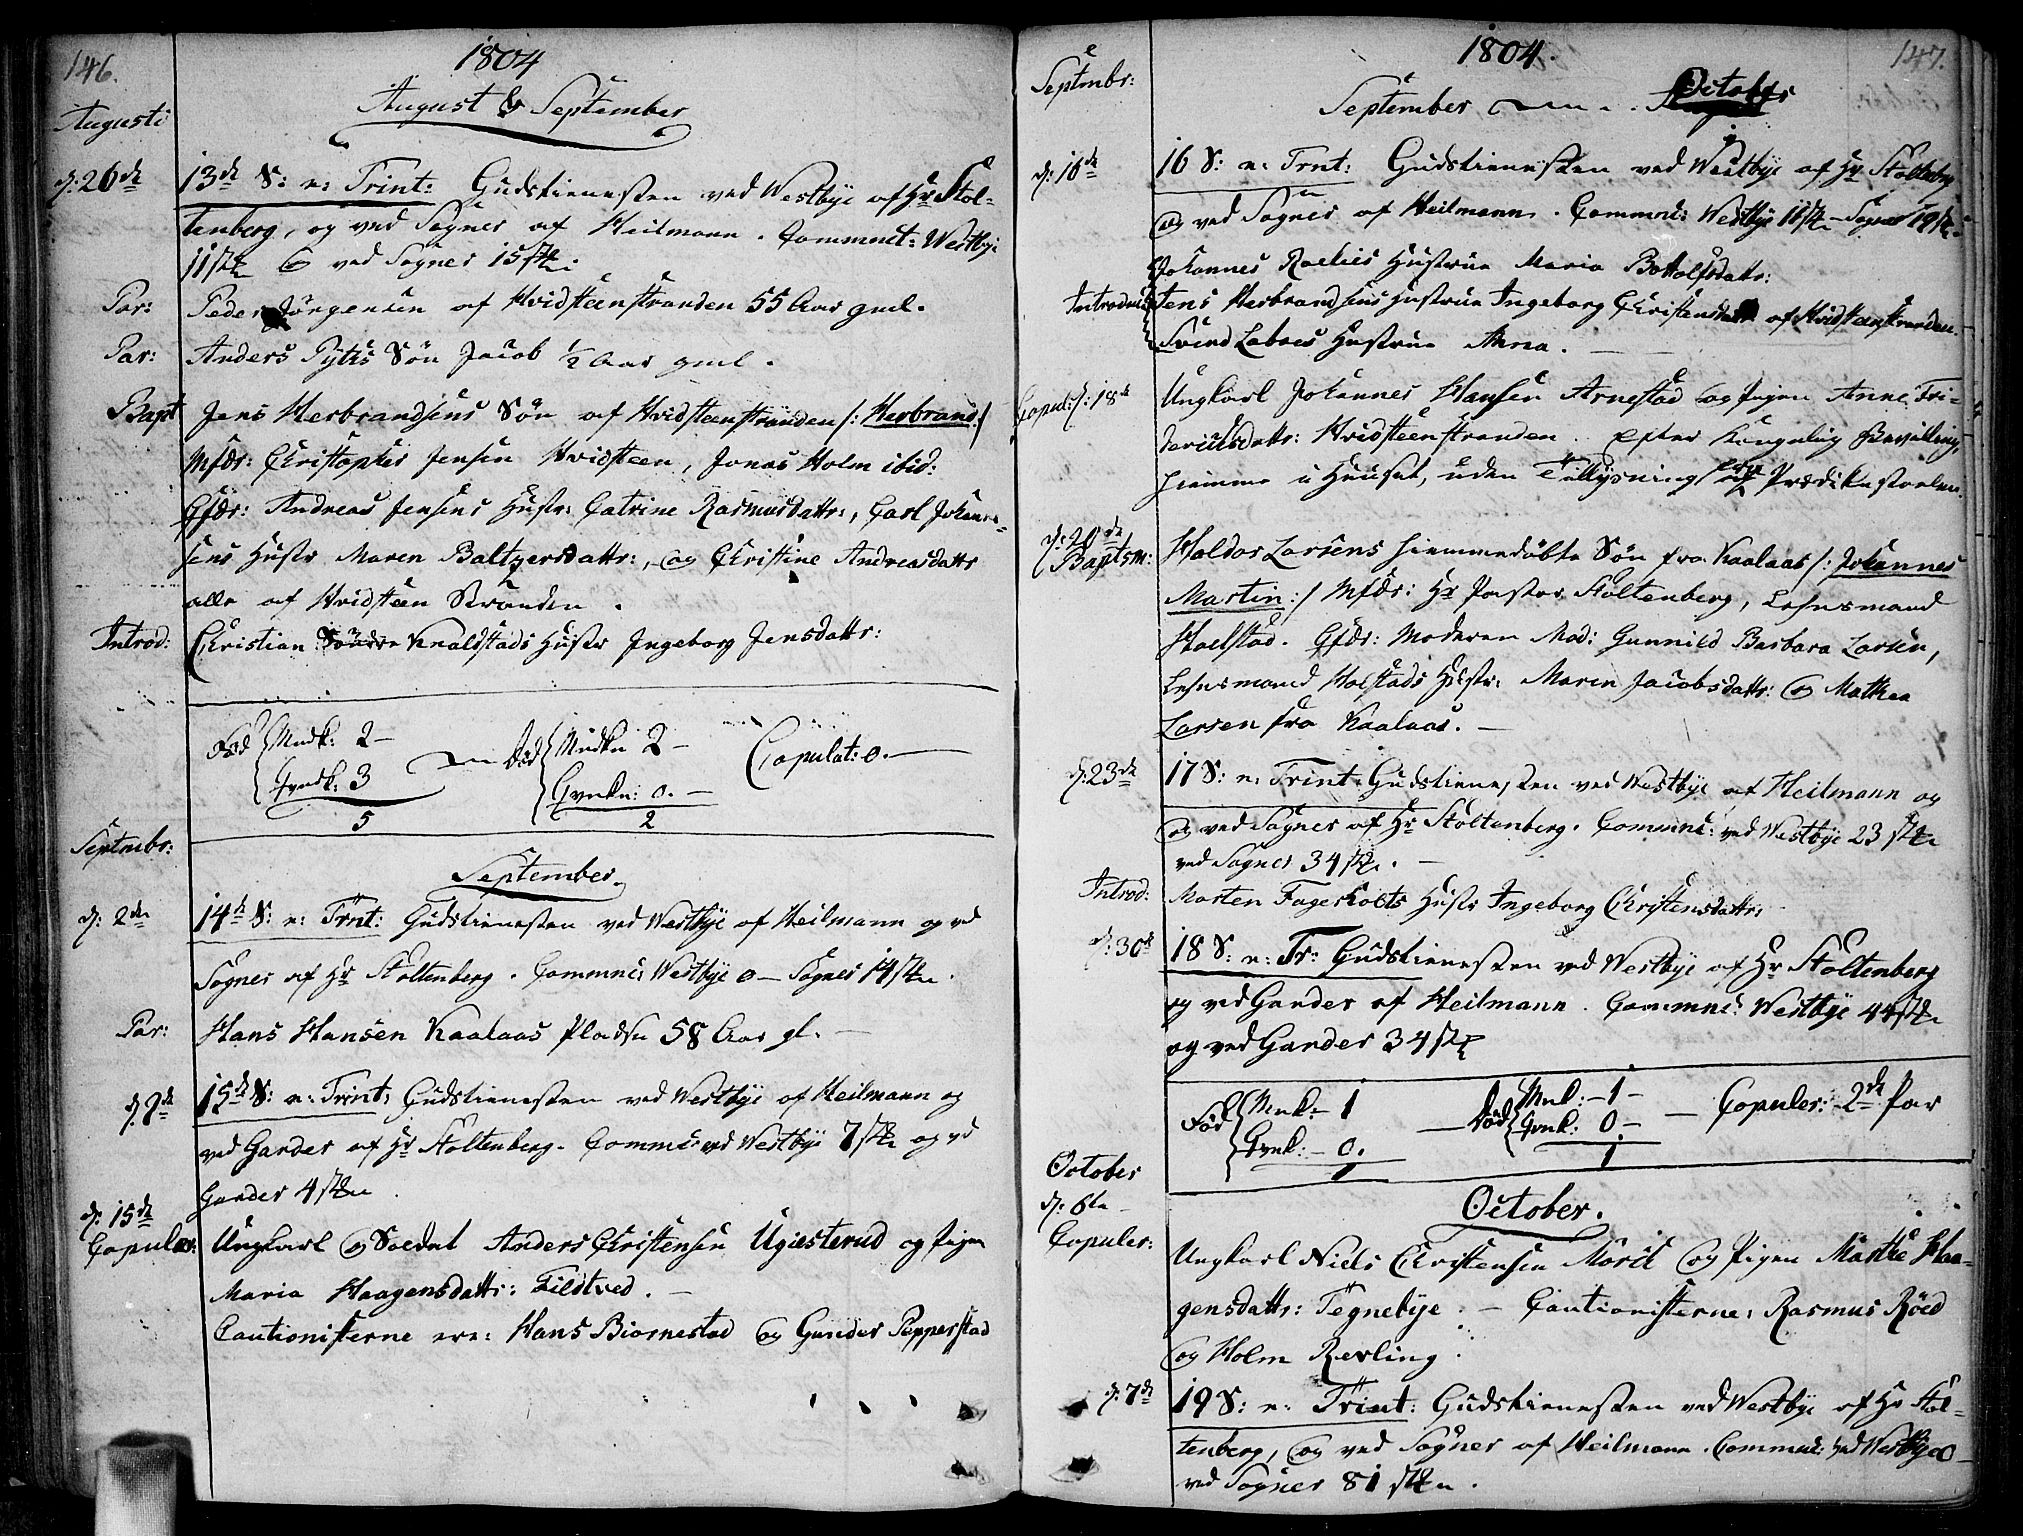 146.
1804
August & September
Augusti
d: 26de 13de S: e: Trint: Gudstienesten ved Westbye af Hr Stol-
tenberg, og ved Sogner af Heilmann. Commnct: Westbye
11 stk & ved Sogner 15 stk:
Par: Peder Jörgensen af Hvidsteenstranden 55 Aar gml.
Par: Anders Pytts Sön Jacob 1/2 Aar gml.
Bapt Jens Herbrandsens Sön af Hvidsteenstranden /: Herbrand :/
Mfdr: Christopher Jensen Hvidsteen, Jonas Holm ibid:
Gfdr: Andreas Jensens Hustr: Catrine Rasmusdattr:, Carl Johann-
sens Hustr Maren Baltzersdattr:, og Christine Andreasdattr
alle af Hvidsteen Stranden.
Introd: Christian Knaldstads Hustr Ingeborg Jensdattr:
Föd Mndk: 2 — Död Mndkn 2 — Copulat: 0. —
Qvndk: 3 Qvnkn: 0. —
5 2
Septmbr:
September.
d: 2den 14de S: e: Trnt: Gudstienesten ved Westbye af Heilmann og vd
Sogner af Hr Stoltenberg. Commnc: Westbye 0 — Sogner 14 stkr.
Par: Hans Hansen Kaalaas Pladsen 58 Aar gl. —
d: 9de 15de S: e: Trint: Gudstienesten ved Westbye af Heilmann og
ved Garder af Hr Stoltenberg. Commnc: ved Westbye 7 stkr og vd
Garder 4 stkr.
d: 15de
Copuler: Ungkarl og Soldat Anders Christensen Ugiesterud og Pigen
Maria Haagensdattr: Fildtved. —
Cautionisterne ere: Hans Biornestad og Gunder Pepperstad
147.
1804.
Septmbr:
September — October
d: 16de 16 S: e: Trnt: Gudstienesten ved Westbye af Hr Stoltenberg
og ved Sogner af Heilmann. Commnc: Westbye 11 stk — Sogner 19 stk.
Johannes Hustrue Maria Bottolfsdattr:
Introduc: Jens Herbrandsens Hustrue Ingeborg Christensdattr af Hvidsteenstranden.
Svend Labos Hustrue Anna. —
Copul: d: 18de Ungkarl Johannes Hansen Arnestad og Pigen Anne Fri-
dericksdattr: Hvidsteenstranden. Efter Kongelig Bevilling,
hiemme i Huuset, uden Tillysning Prædikestoelen.
d: 20de
Baptsm: Haldor Larsens hiemmedöbte Sön fra Kaalaas /: Johannes
Martin :/ Mfdr: Hr Pastor Stoltenberg, Lehnsmand
Hoelstad. Gfdr: Moderen Mad: Gunnild Barbara Larsen,
Lehnsmand Holstads Hustr: Maren Jacobsdattr: og Mathea
Larsen fra Kaalaas. —
d: 23de 17 S: e: Trint: Gudstienesten ved Westbye af Heilmann og
og ved Sogner af Hr Stoltenberg. Commnc: ved Westbye 23 stkr
ved Sogner 34 stkr. —
Introd: Morten Fagerholts Hustr Ingeborg Christensdattr:
d: 30de 18 S: e: Tr: Gudstienesten ved Westbye af Hr Stoltenberg
og ved Garder af Heilmann. Commnc: Westbye 44 stkr
og ved Garder 34 stkr
Föd Mnk: — 1 — Död Mnk: — 1 — Copuler: 2de Par
Qvnk: — 0. Qvnk: 0 —
1 1
October
October.
d: 6te
Copuler: Ungkarl Niels Christensen Mörit og Pigen Marthe Haa-
gensdattr: Tegnebye. — Cautionisterne: Rasmus Röed
og Holm Revling.
d: 7de 19 S: e: Trint: Gudstienesten ved Westbye af Hr Stol-
tenberg, og ved Sogner af Heilmann. Commnc: ved Westbye 0 —
ved Sogner 81 stkr.